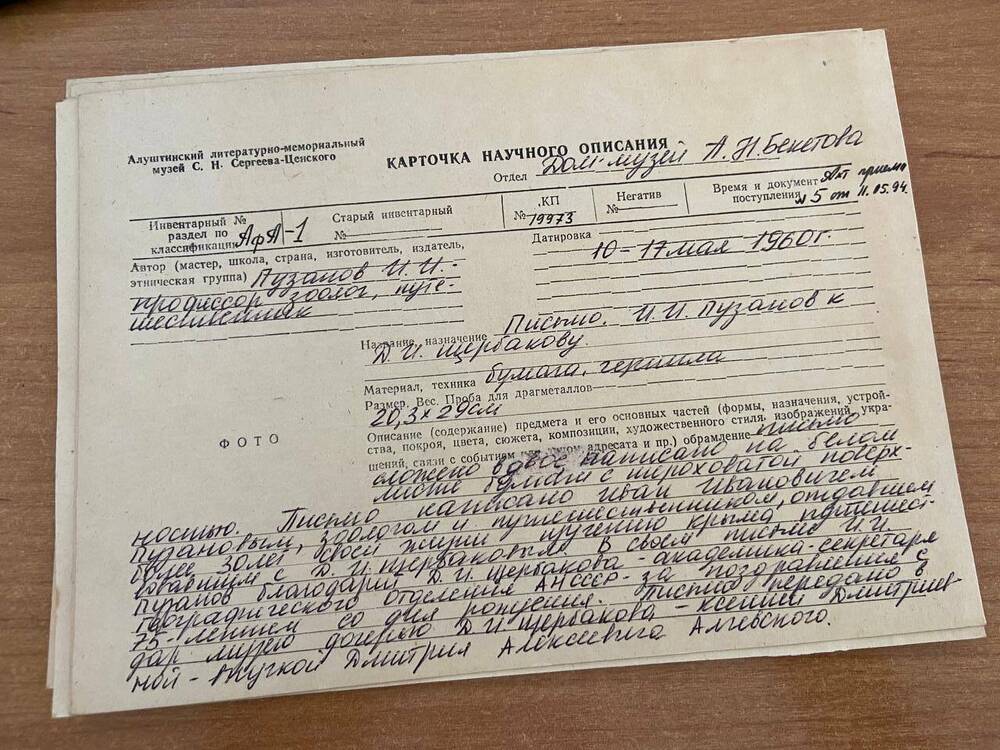 Алуштинский литературно-мемориальный
музей С. Н. Сергеева-Ценского
КАРТОЧКА НАУЧНОГО ОПИСАНИЯ
Отдел Дом-музей А.Н.Бекетова
Инвентарный №
раздел по
классификации АфА-1
Старый инвентарный
№
КП
№ 19973
Негатив
№
Время и документ Акт приема
поступления № 5 от 11.05.94.
Автор (мастер, школа, страна, изготовитель, издатель,
этническая группа) Пузанов И.И. -
профессор зоолог, путе-
шественник
Датировка
10-17 мая 1960г.
Название, назначение Письмо. И.И. Пузанов к
Д.И. Щербакову
Материал, техника бумага, чернила
Размер. Вес. Проба для драгметаллов
20,3 х 29см
ФОТО
Описание (содержание) предмета и его основных частей (формы, назначения, устрой-
ства, покроя, цвета, сюжета, композиции, художественного стиля, изображений, укра-
шений, связи с событием или лицом адресата и пр.) обрамление письмо
сложено вдвое написано на белом
листе бумаги с шероховатой поверх-
ностью. Письмо написано Иван Ивановичем
Пузановым, зоологом и путешественником, отдавшем
более 30лет своей жизни изучению Крыма путешест-
вовавшим с Д.И. Щербаковым. В своем письме И.И.
Пузанов благодарит Д.И. Щербакова-академика-секретаря
географического отделения АНСССР - за поздравления с
75-летием со дня рождения. Письмо передано в
дар музею дочерью Д.И. Щербакова - Ксенией Дмитриев-
ной - внучкой Дмитрия Алексеевича Алчевского.